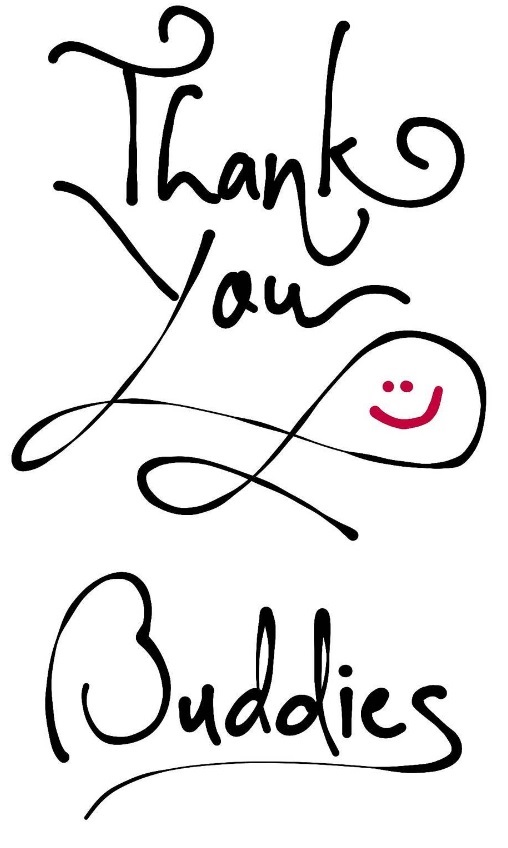 Thank
You
Buddies